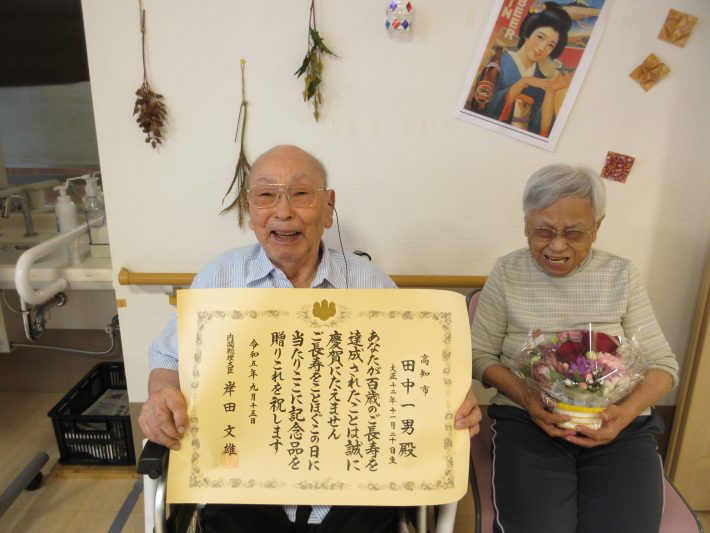 高知市
田中一男殿
大正十二年十一月二十日生
あなたが百歳のご長寿を
達成されたことは誠に
慶賀にたえません
ご長寿をことほぎこの日に
当たりここに記念品を
贈りこれを祝します
令和五年九月十五日
内閣総理大臣 岸田文雄
BEER